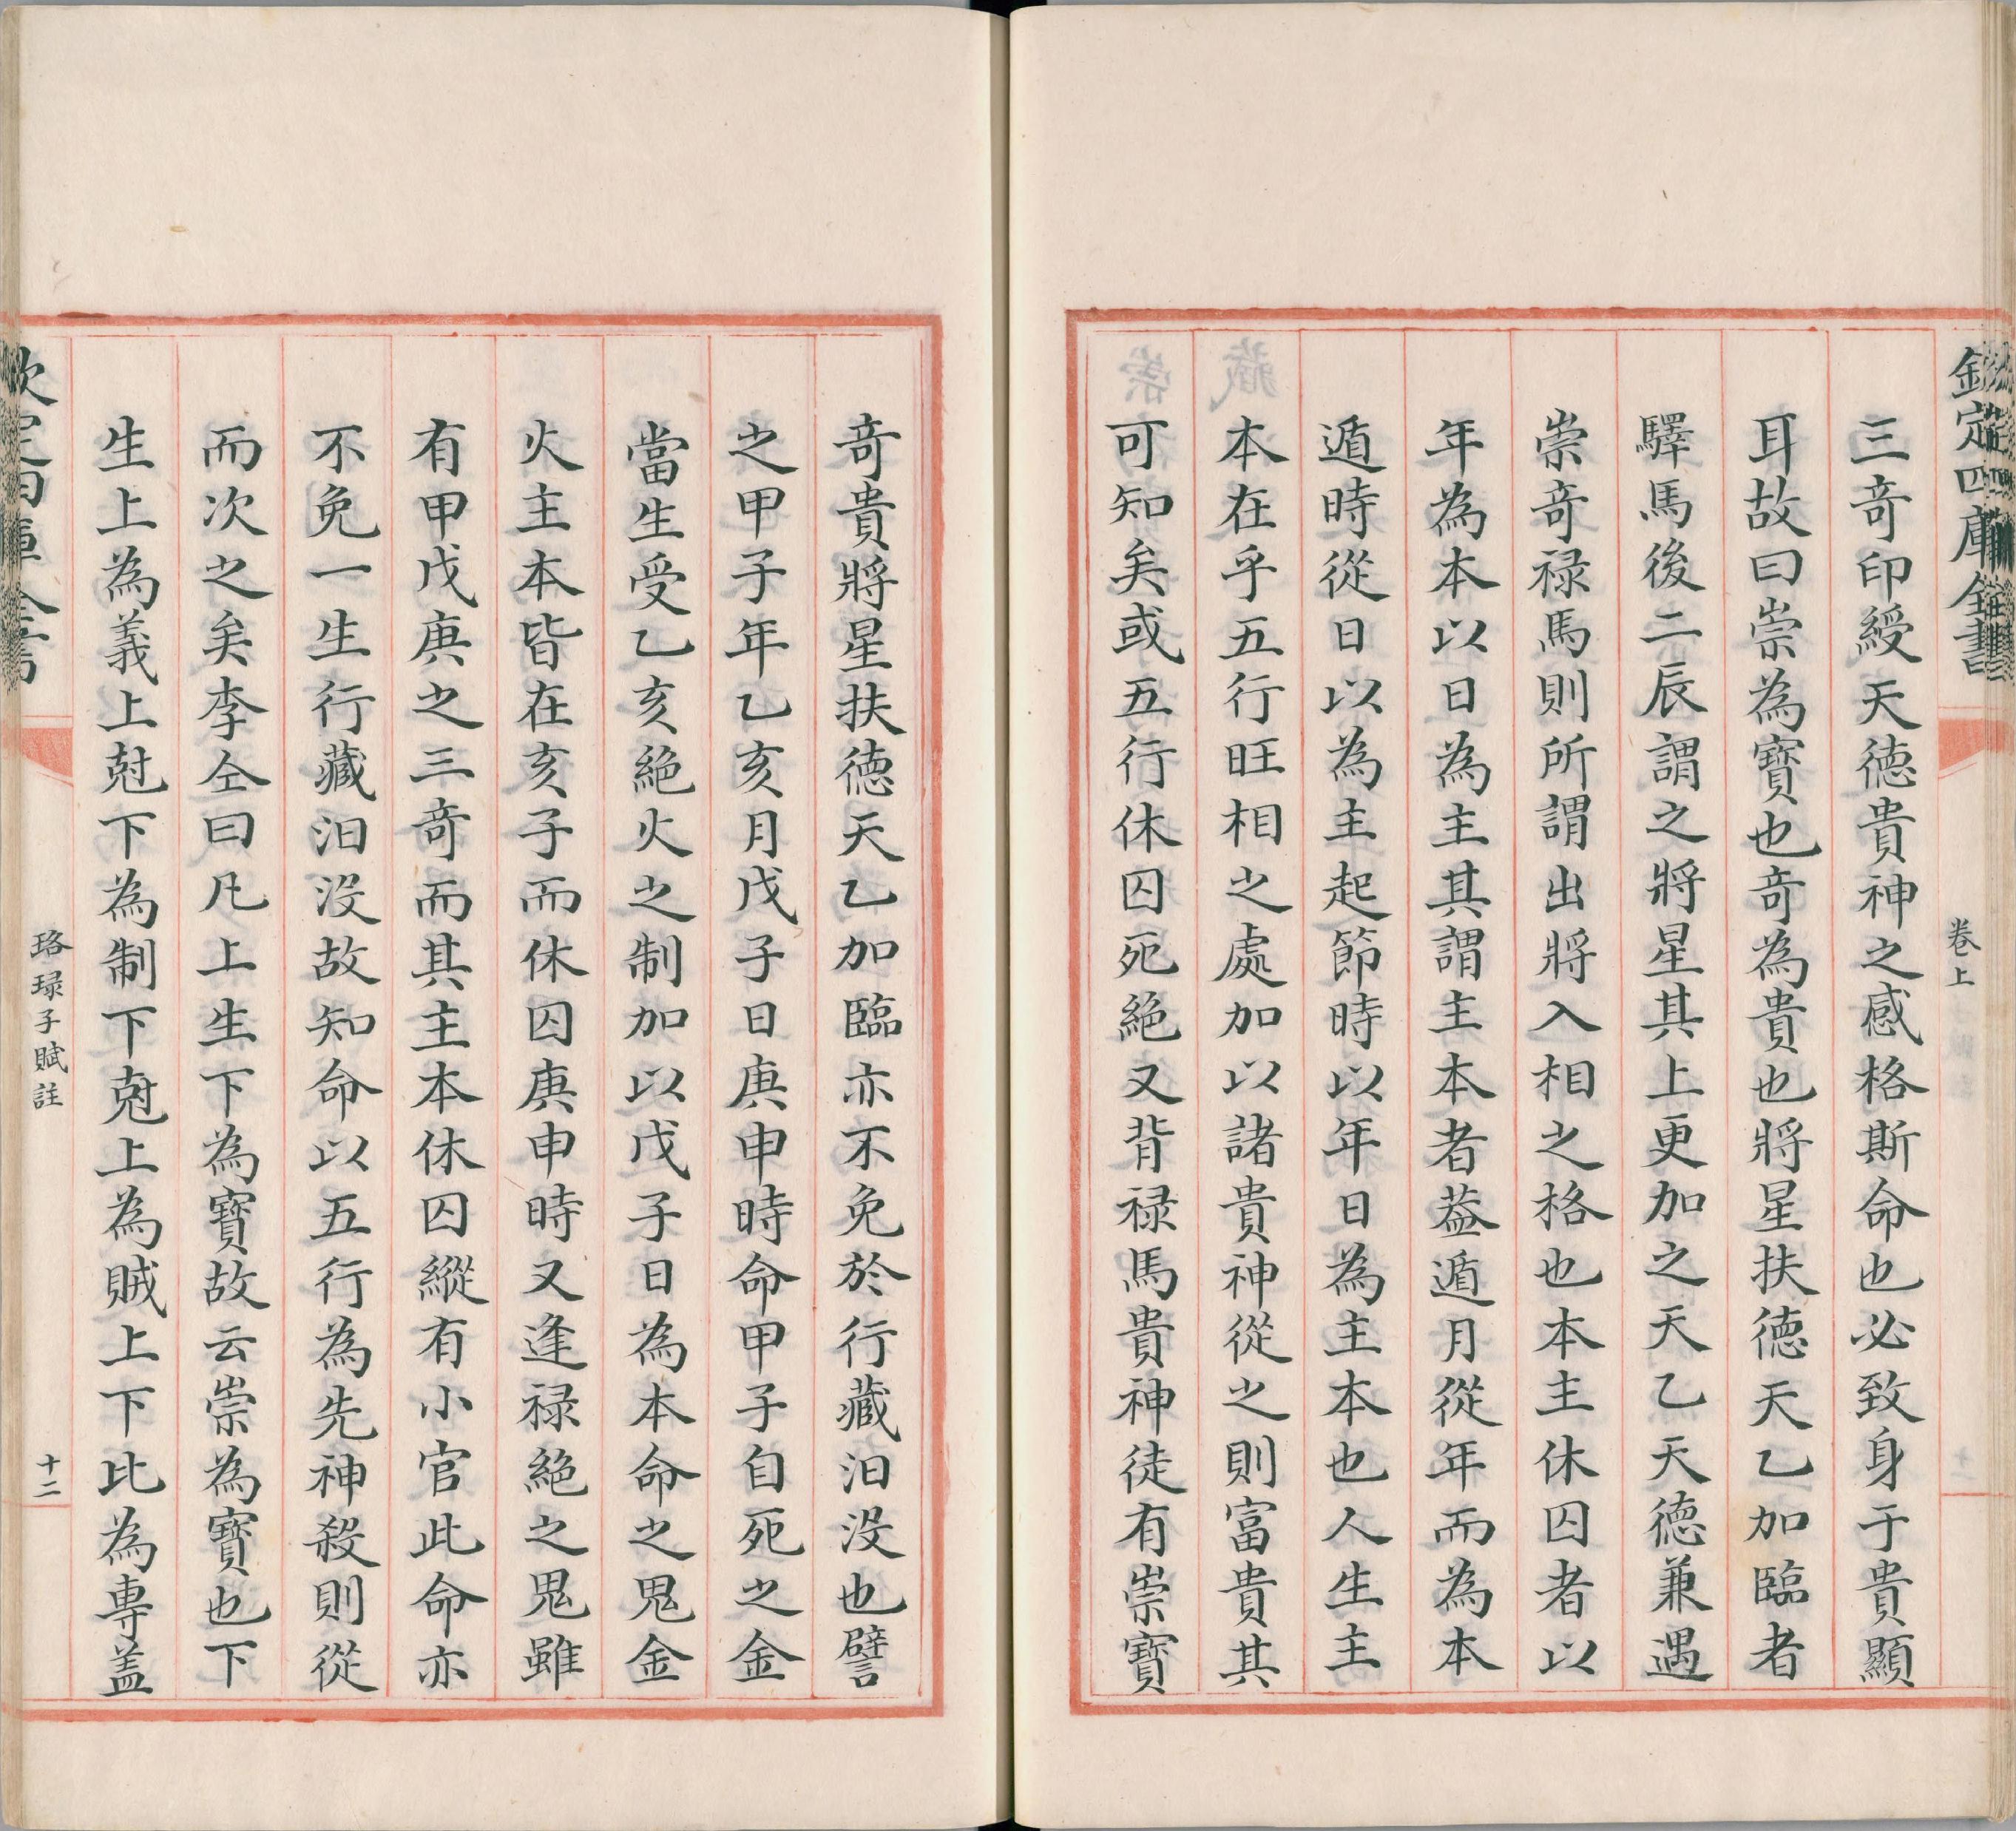 欽定四庫全書
卷上
三竒印綬天德貴神之感格斯命也必致身于貴顯
耳故曰崇為寶也竒為貴也將星扶德天乙加臨者
驛馬後二辰謂之將星其上更加之天乙天德兼遇
崇竒禄馬則所謂出將入相之格也本主休囚者以
年為本以日為主其謂主本者葢遁月從年而為本
遁時從日以為主起節時以年日為主本也人生主
本在乎五行旺相之處加以諸貴神從之則富貴其
可知矣或五行休囚死絶又背禄馬貴神徒有崇寶
竒貴將星扶德天乙加臨亦不免於行藏汨没也譬
之甲子年乙亥月戊子日庚申時命甲子自死之金
當生受乙亥絶火之制加以戊子日為本命之鬼金
火主本皆在亥子而休囚庚申時又逢禄絶之鬼雖
有甲戊庚之三竒而其主本休囚縱有小官此命亦
不免一生行藏汨没故知命以五行為先神殺則從
而次之矣李仝曰凡上生下為寶故云崇為寶也下
生上為義上尅下為制下尅上為賊上下比為專盖
欽定四庫全書
珞琭子賦註
十二